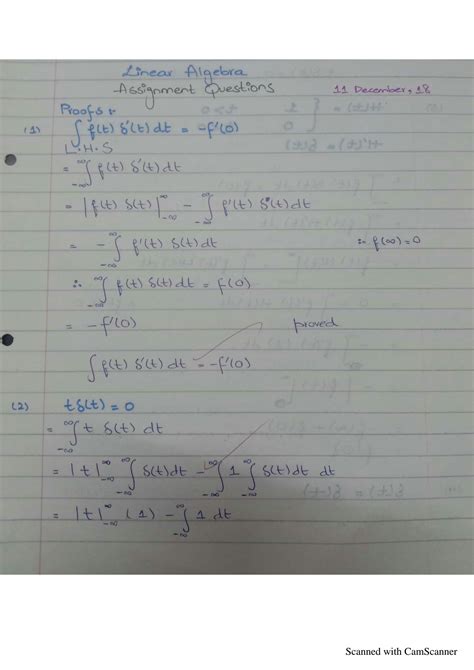 Linear Algebra
Assignment Questions
11 December, 18
Proofs :-
(1) ∫ f(t) δ'(t) dt = -f'(0)
L.H.S
= ∫_{-∞}^{∞} f(t) δ'(t) dt
= |f(t) δ(t)|_{-∞}^{∞} - ∫_{-∞}^{∞} f'(t) δ(t) dt
= -∫_{-∞}^{∞} f'(t) δ(t) dt ∴ f(∞) = 0
∴ ∫_{-∞}^{∞} f(t) δ(t) dt = f(0)
= -f'(0) proved
∫ f(t) δ'(t) dt = -f'(0)
(2) t δ(t) = 0
= ∫_{-∞}^{∞} t δ(t) dt
= |t|_{-∞}^{∞} ∫_{-∞}^{∞} δ(t) dt - ∫_{-∞}^{∞} 1 ∫_{-∞}^{∞} δ(t) dt dt
= |t|_{-∞}^{∞} (1) - ∫_{-∞}^{∞} 1 dt
Scanned with CamScanner